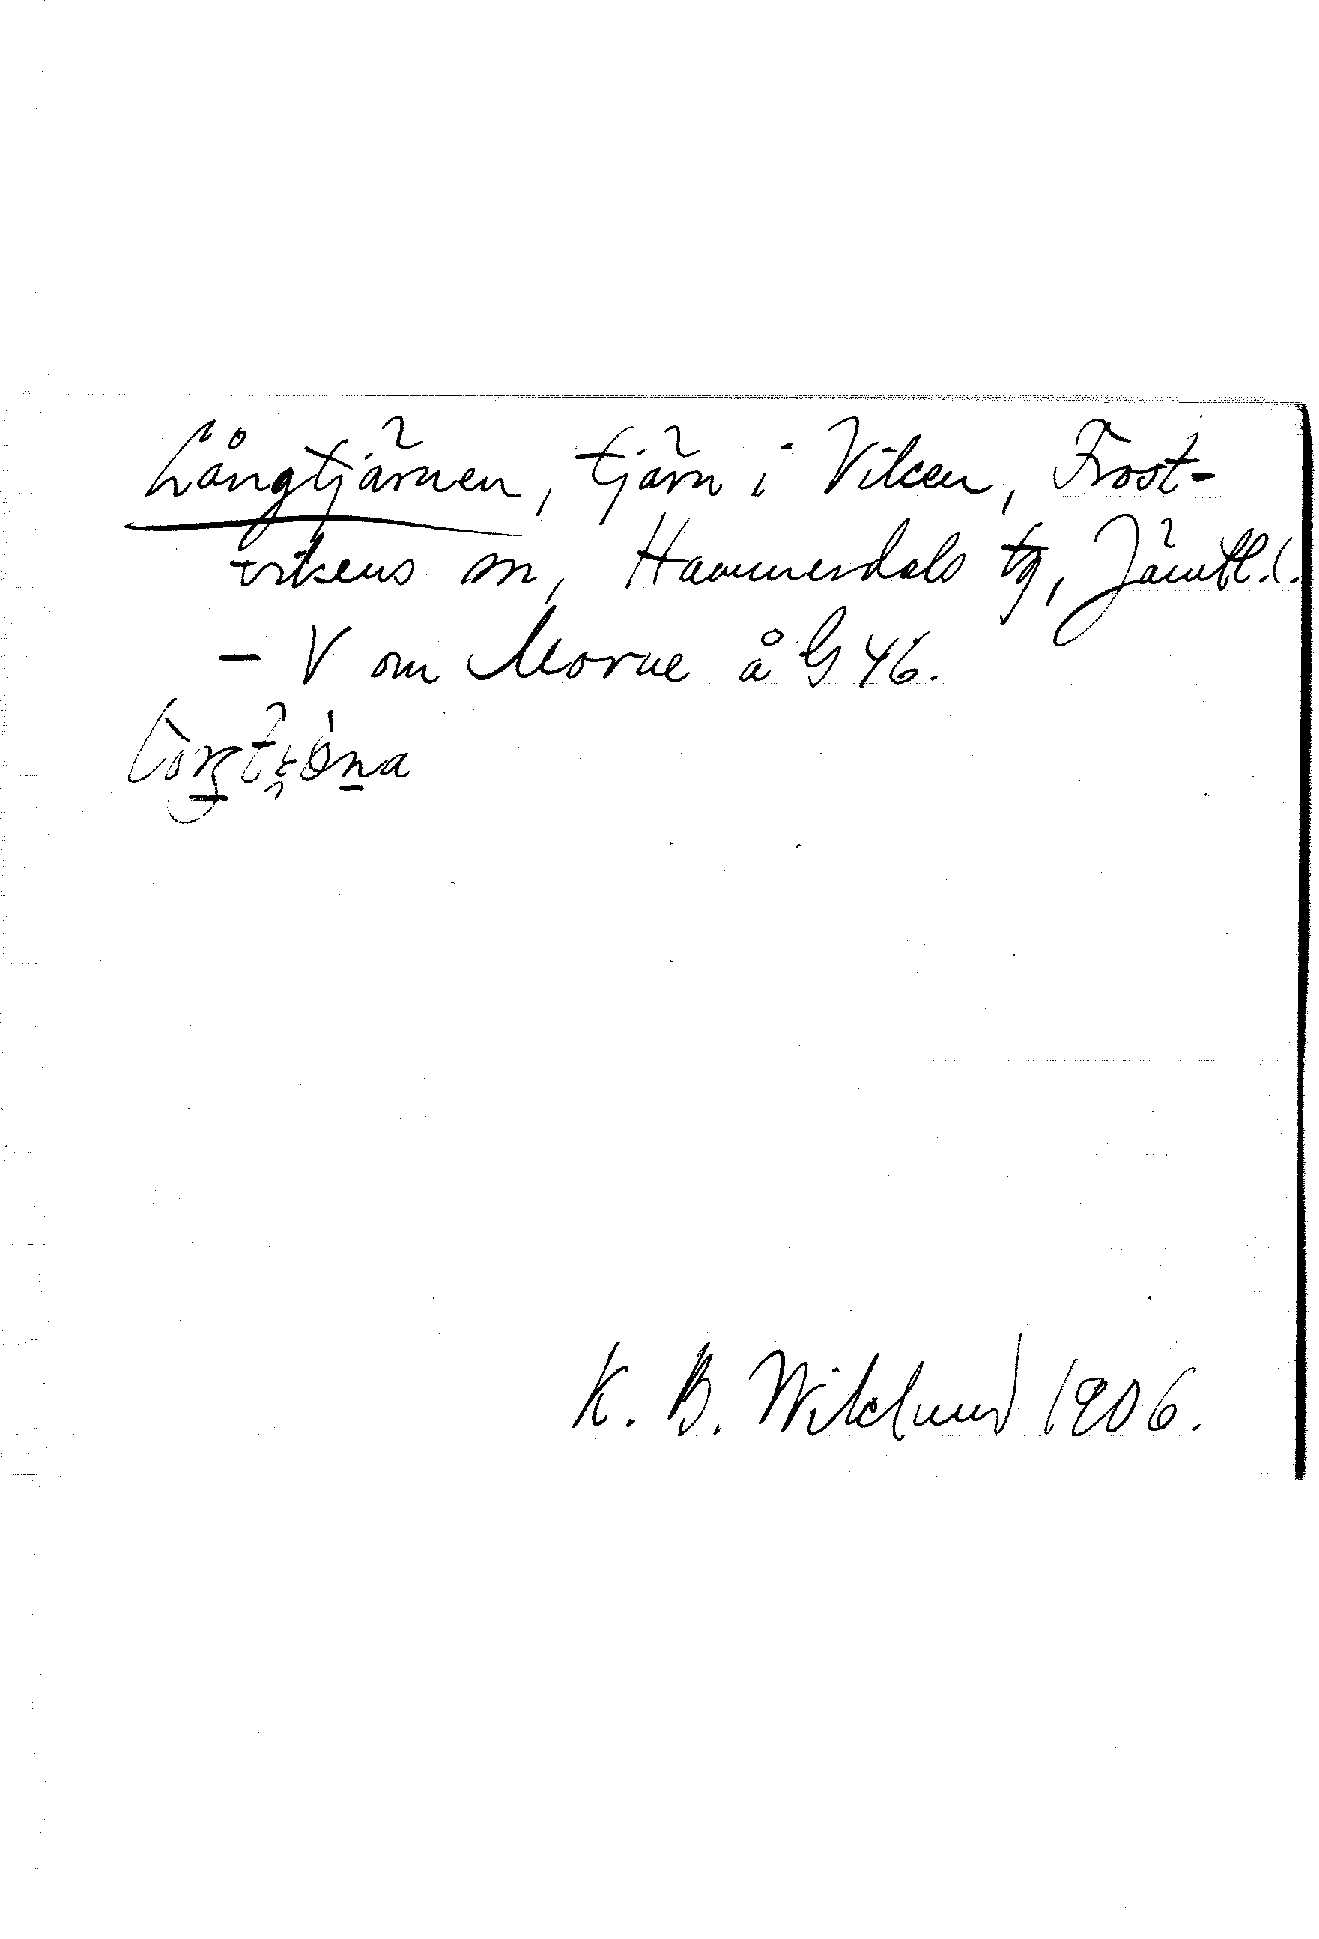 Långtjärnen, tjärn i Viken, Frost-
vikens sn, Hammerdals tg, Jämtl.l.
- V om Morne å G 46.
K. B. Wiklund 1906.